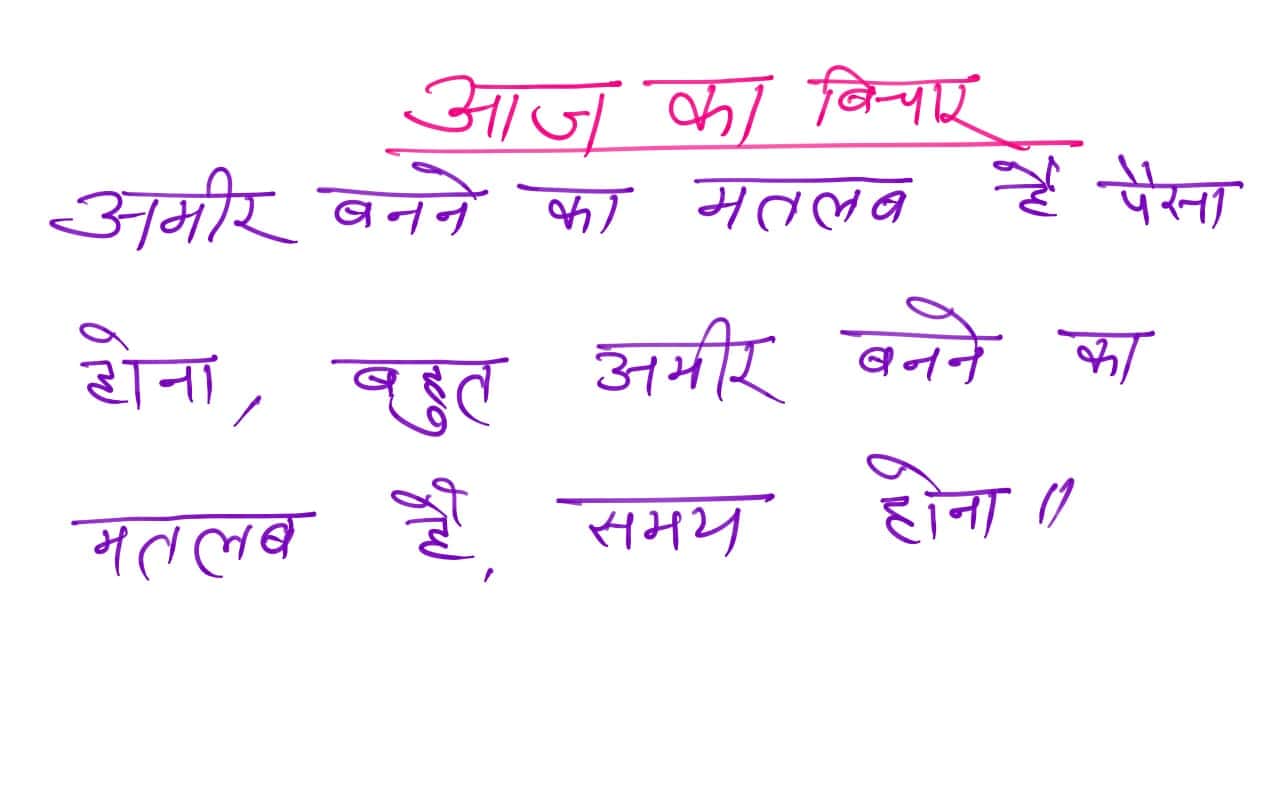 आज का बिचार
अमीर बनने का मतलब है पैसा
होना, बहुत अमीर बनने का
मतलब है, समय होना॥